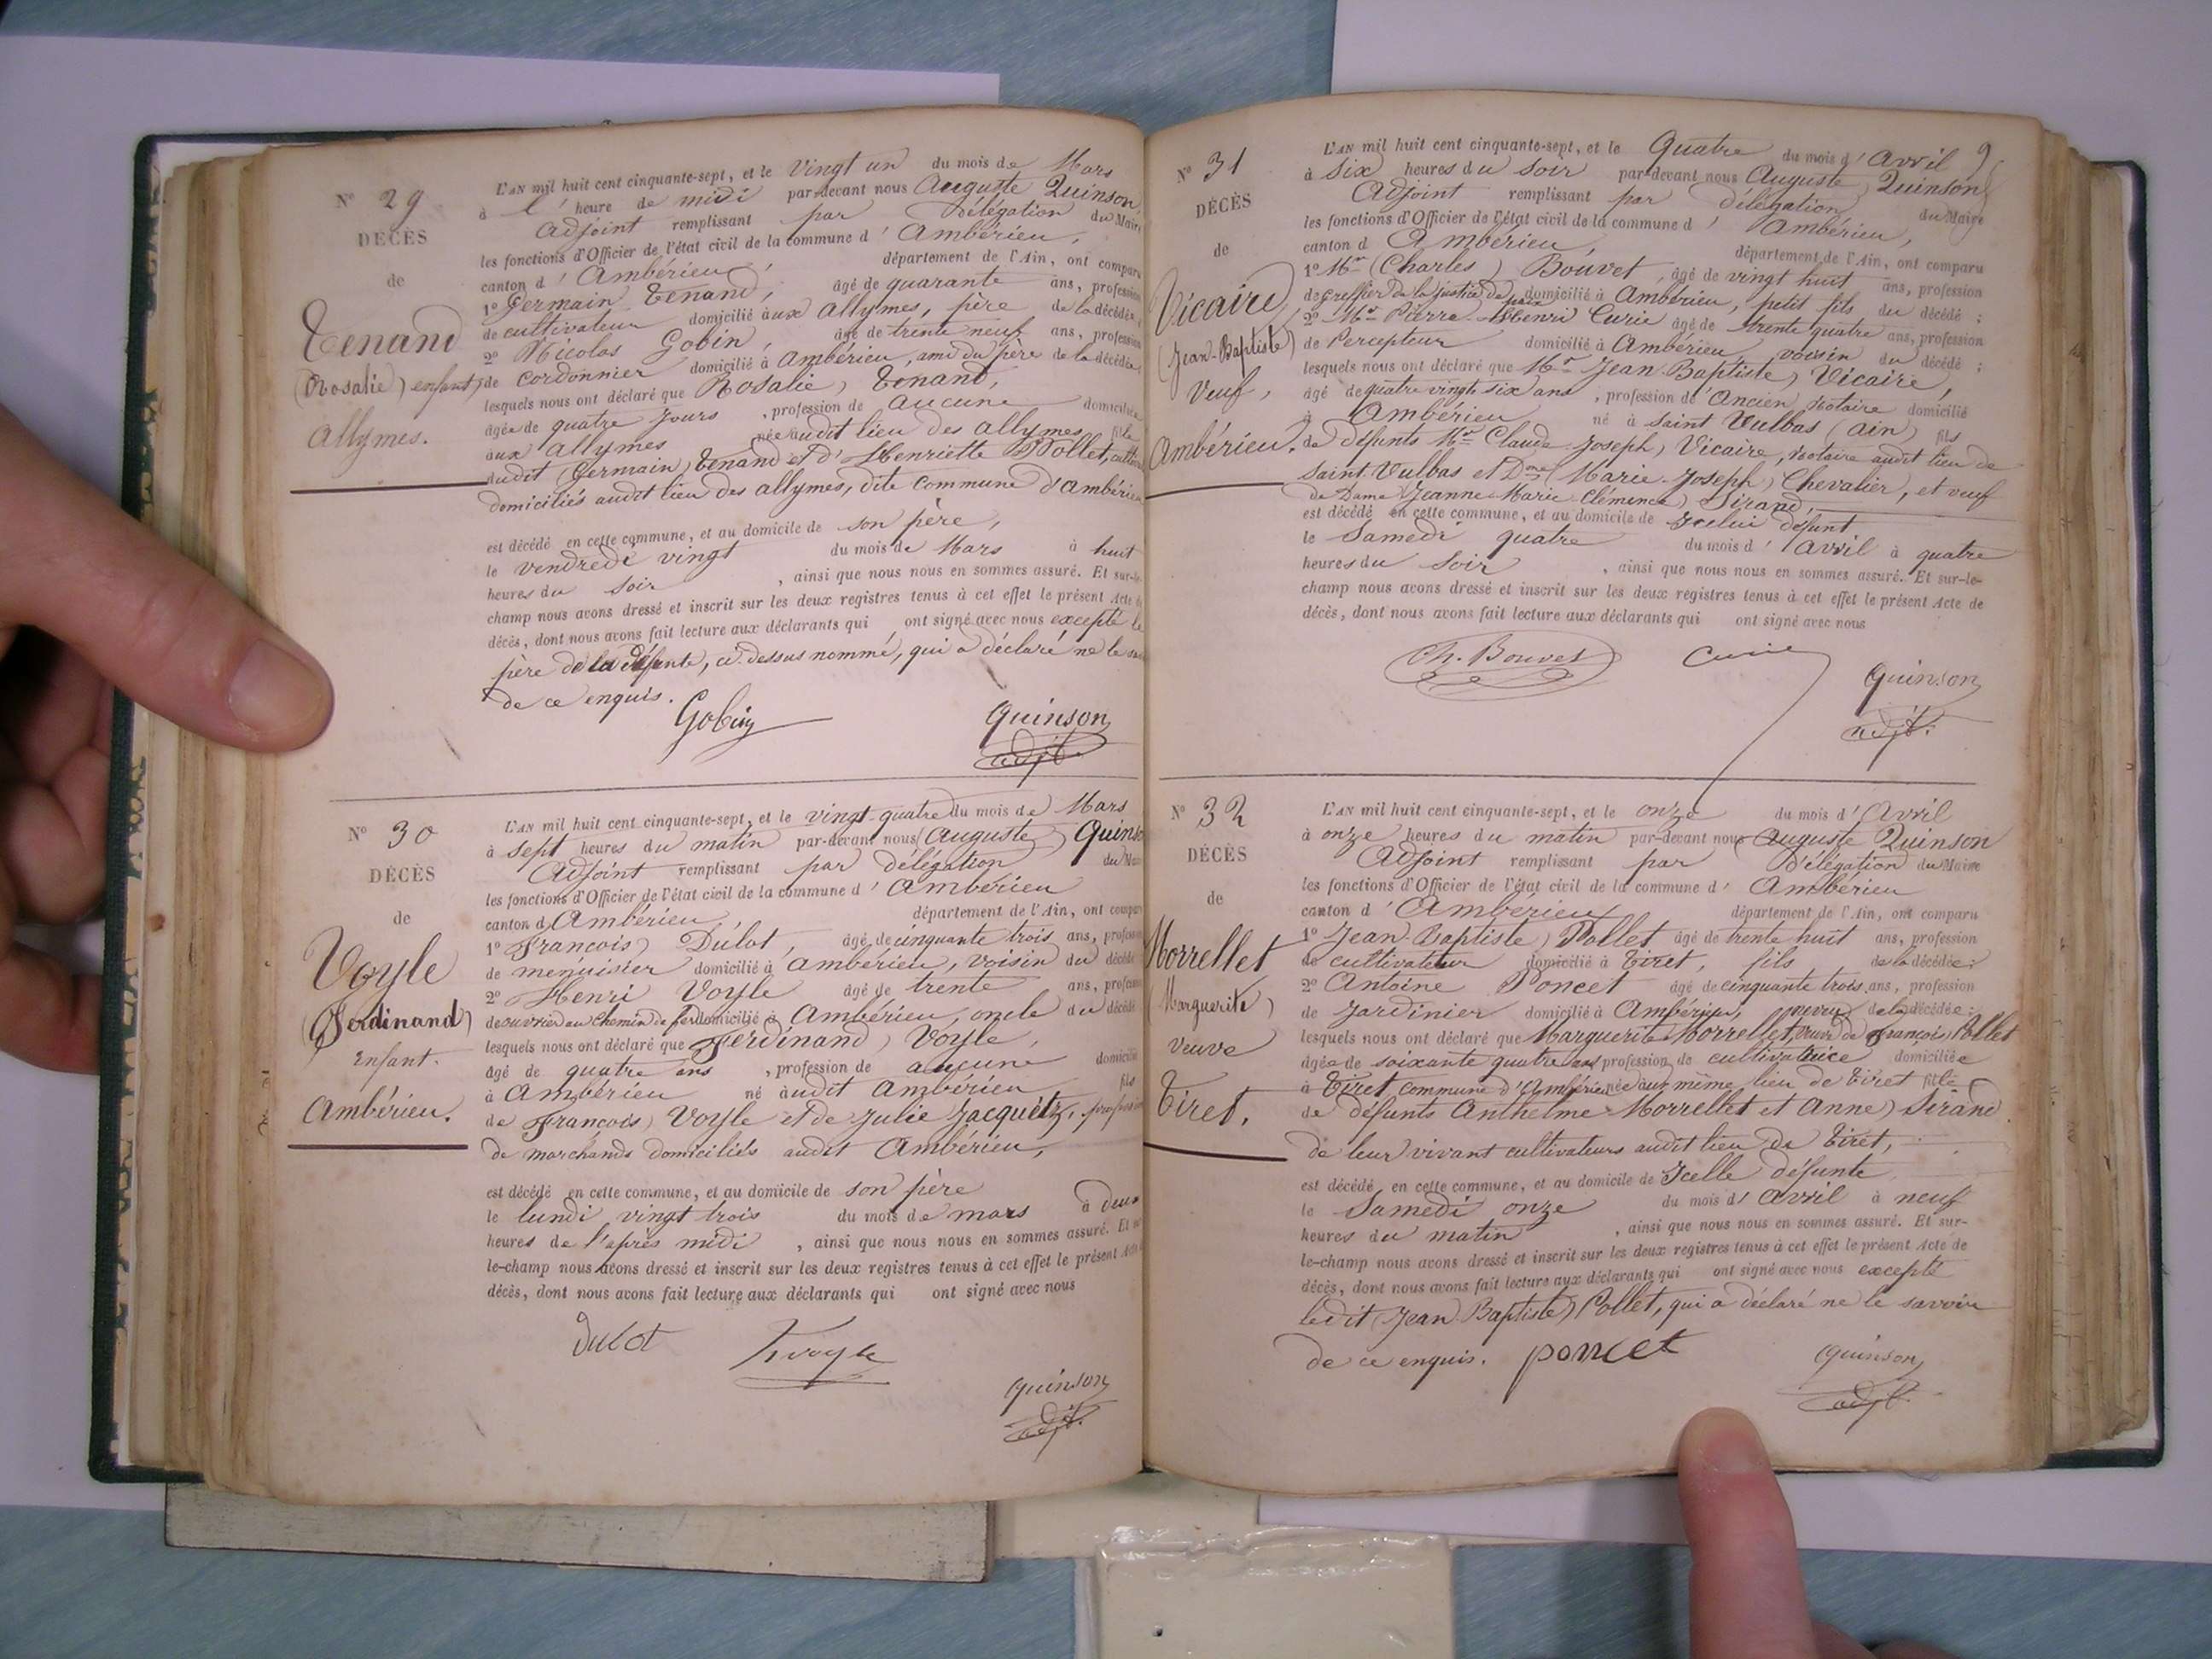 Nº 29
DÉCÈS
de
Tenand
(Rosalie) enfant,
allymes.
L'AN mil huit cent cinquante-sept, et le Vingt un du mois de Mars
à l'heure de midi par-devant nous Auguste Quinson,
Adjoint remplissant par délégation du Maire
les fonctions d'Officier de l'état civil de la commune d'Ambérieu,
canton d'Ambérieu, département de l'Ain, ont comparu
1º Germain Tenand, âgé de quarante ans, profession
de cultivateur domicilié aux allymes, père de la décédée,
2º Nicolas Gobin, âgé de trente neuf ans, profession
de cordonnier domicilié à Ambérieu, ami du père de la décédée,
lesquels nous ont déclaré que Rosalie) Tenand,
âgée de quatre jours, profession de aucune domiciliée
aux allymes née audit lieu des allymes fille
dudit (Germain) Tenand et d'Henriette Pollet,
domiciliés audit lieu des allymes, dite commune d'Ambérieu
est décédé en cette commune, et au domicile de son père,
le vendredi vingt du mois de Mars à huit
heures du soir, ainsi que nous nous en sommes assuré. Et sur-le-
champ nous avons dressé et inscrit sur les deux registres tenus à cet effet le présent Acte de
décès, dont nous avons fait lecture aux déclarants qui ont signé avec nous excepté le
père de la défunte, ci-dessus nommé, qui a déclaré ne le
de ce enquis.
Gobin Quinson
adjt.
Nº 30
DÉCÈS
de
Voyle
(Ferdinand)
Enfant.
Ambérieu.
L'AN mil huit cent cinquante-sept, et le vingt-quatre du mois de Mars
à sept heures du matin par-devant nous (Auguste) Quinson
Adjoint remplissant par délégation du Maire
les fonctions d'Officier de l'état civil de la commune d'Ambérieu
canton d'Ambérieu, département de l'Ain, ont comparu
1º François) Dulot, âgé de cinquante trois ans, profession
de menuisier domicilié à Ambérieu, voisin du décédé
2º Henri Voyle âgé de trente ans, profession
de ouvrier au chemin de fer domicilié à Ambérieu, oncle du décédé
lesquels nous ont déclaré que Ferdinand) Voyle,
âgé de quatre ans, profession de aucune domicilié
à Ambérieu né audit Ambérieu fils
de François) Voyle et de Julie Jacquetz, profession
de marchands domiciliés audit Ambérieu,
est décédé en cette commune, et au domicile de son père
le lundi vingt trois du mois de mars à deux
heures de l'après midi, ainsi que nous nous en sommes assuré. Et sur-
le-champ nous avons dressé et inscrit sur les deux registres tenus à cet effet le présent Acte de
décès, dont nous avons fait lecture aux déclarants qui ont signé avec nous
Dulot hvoyle
Quinson
adjt.
9
Nº 31
DÉCÈS
de
Vicaire
(Jean-Baptiste)
Veuf,
Ambérieu.
L'AN mil huit cent cinquante-sept, et le Quatre du mois d'Avril
à Six heures du soir par-devant nous Auguste) Quinson
Adjoint remplissant par délégation du Maire
les fonctions d'Officier de l'état civil de la commune d'Ambérieu,
canton d Ambérieu, département de l'Ain, ont comparu
1º Mr (Charles) Bouvet, âgé de vingt huit ans, profession
de greffier de la justice de paix domicilié à Ambérieu, petit fils du décédé;
2º Mr Pierre-Henri Curie âgé de trente quatre ans, profession
de Percepteur domicilié à Ambérieu voisin du décédé;
lesquels nous ont déclaré que Mr Jean-Baptiste) Vicaire,
âgé de quatre vingt six ans, profession d'ancien Notaire domicilié
à Ambérieu né à Saint Vulbas (ain) fils
de défunts Mr Claude-Joseph) Vicaire, Notaire audit lieu de
Saint-Vulbas et Dme (Marie-Joseph) Chevalier, et veuf
de Dame (Jeanne-Marie-Clémence) Sirand,
est décédé en cette commune, et au domicile de Icelui défunt
le Samedi quatre du mois d'avril à quatre
heures du soir, ainsi que nous nous en sommes assuré. Et sur-le-
champ nous avons dressé et inscrit sur les deux registres tenus à cet effet le présent Acte de
décès, dont nous avons fait lecture aux déclarants qui ont signé avec nous
Ch. Bouvet Curie Quinson
adjt.
Nº 32
DÉCÈS
de
Morrellet
(Marguerite)
veuve
Tiret.
L'AN mil huit cent cinquante-sept, et le onze du mois d'Avril
à onze heures du matin par-devant nous Auguste Quinson
Adjoint remplissant par délégation du Maire
les fonctions d'Officier de l'état civil de la commune d'Ambérieu
canton d'Ambérieu département de l'Ain, ont comparu
1º Jean-Baptiste) Pollet âgé de trente huit ans, profession
de cultivateur domicilié à Tiret, fils de la décédée;
2º Antoine Poncet âgé de cinquante trois ans, profession
de Jardinier domicilié à Ambérieu, neveu de la décédée;
lesquels nous ont déclaré que Marguerite Morrellet, veuve de François Pollet
âgée de soixante quatre ans profession de cultivatrice domiciliée
à Tiret commune d'Ambérieu née au même lieu de Tiret fille
de défunts Anthelme Morrellet et Anne) Sirand
de leur vivant cultivateurs audit lieu de Tiret,
est décédé en cette commune, et au domicile de Icelle défunte
le Samedi onze du mois d'avril à neuf
heures du matin, ainsi que nous nous en sommes assuré. Et sur-
le-champ nous avons dressé et inscrit sur les deux registres tenus à cet effet le présent Acte de
décès, dont nous avons fait lecture aux déclarants qui ont signé avec nous excepté
ledit (Jean-Baptiste) Pollet, qui a déclaré ne le savoir
de ce enquis. poncet Quinson
adjt.